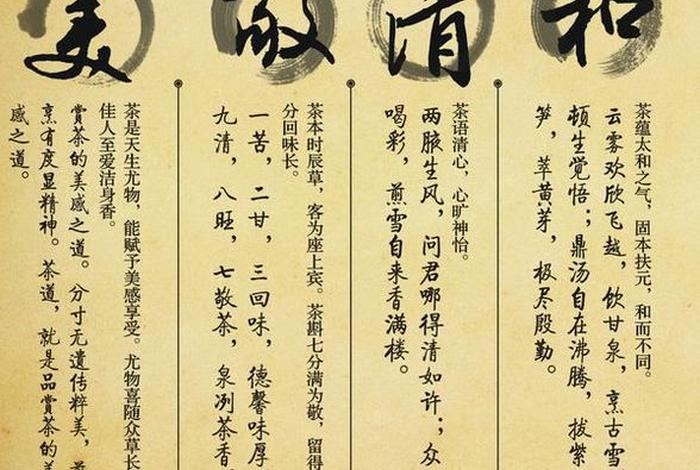 和
茶蕴太和之气，固本扶元，和而不同。
云雾欢欣飞越，饮甘泉，烹古雪
顿生觉悟；鼎汤自在沸腾，拔紫
笋，萃黄芽，极尽殷勤。
清
茶语清心，心旷神怡。
两腋生风，问君哪得清如许；众
喝彩，煎雪自来香满楼。
敬
茶本时辰草，客为座上宾。茶斟七分满为敬，留得
分回味长。
一苦，二甘，三回味，德馨味厚
九清，八旺，七敬茶，泉冽茶香
美
茶是天生尤物，能赋予美感享受。尤物喜随众草长
佳人至爱洁身香。
赏茶的美感之道。分寸无遗传粹美，
烹有度显精神。茶道，就是品赏茶的美
感之道。